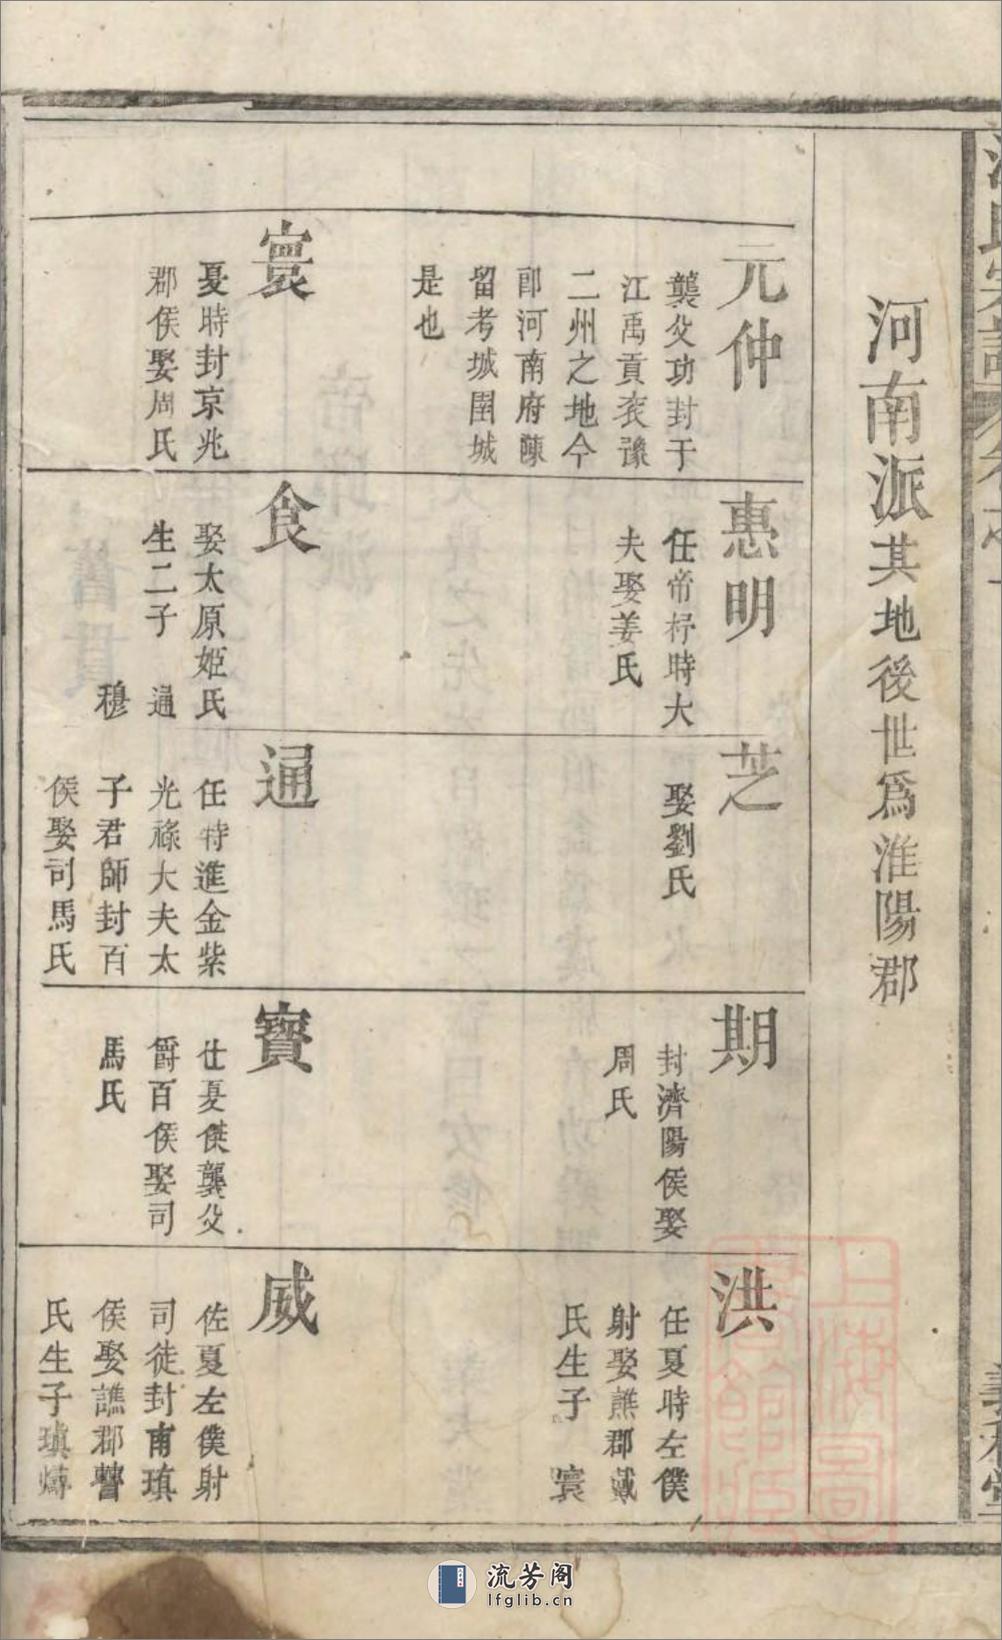 江氏宗譜
義和堂
河南派其地後世爲淮陽郡
元仲
龔父功封于
江禹貢衮豫
二州之地今
卽河南府陳
留考城圉城
是也
惠明
任帝杼時大
夫娶姜氏
芝
娶劉氏
期
封濟陽侯娶
周氏
洪
任夏時左僕
射娶譙郡戴
氏生子 寰
寰
夏時封京兆
郡侯娶周氏
食
娶太原姬氏
生二子 通
穆
通
任特進金紫
光祿大夫太
子君師封百
侯娶司馬氏
寶
仕夏傑龔父
爵百侯娶司
馬氏
威
佐夏左僕射
司徒封南瑱
侯娶譙郡
氏生子瑱
流芳阁
lfglib.cn